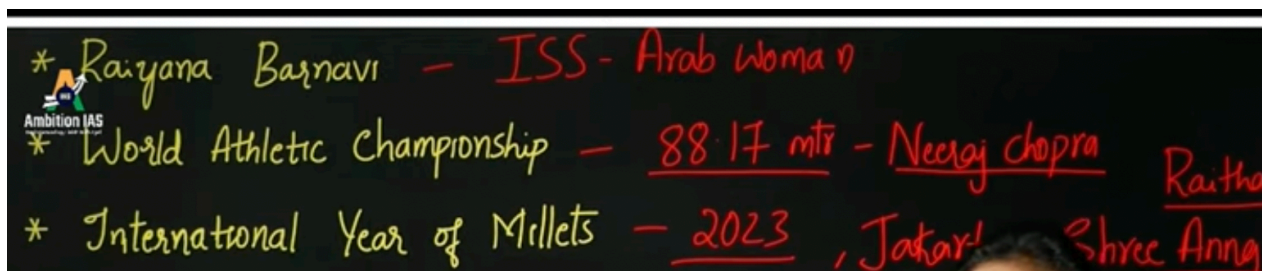 * Raiyana Barnavi - ISS - Arab Woman
Ambition IAS
* World Athletic Championship - 88.17 mtr - Neeraj chopra
* International Year of Millets - 2023, Shree Anna